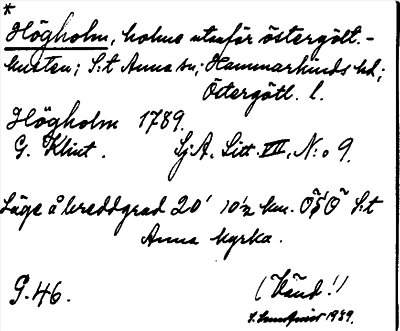 *
Högholm, holme utanför östergötl.-
kusten; S:t Anna sn, Hammarkinds hd;
Östergötl. l.
Högholm 1789.
G. Klint. SjA. Litt. VII, N:o 9.
Läge å breddgrad 20' 10½ km. OSO S:t
Anna kyrka.
G. 46.
(Vänd!)
1939.